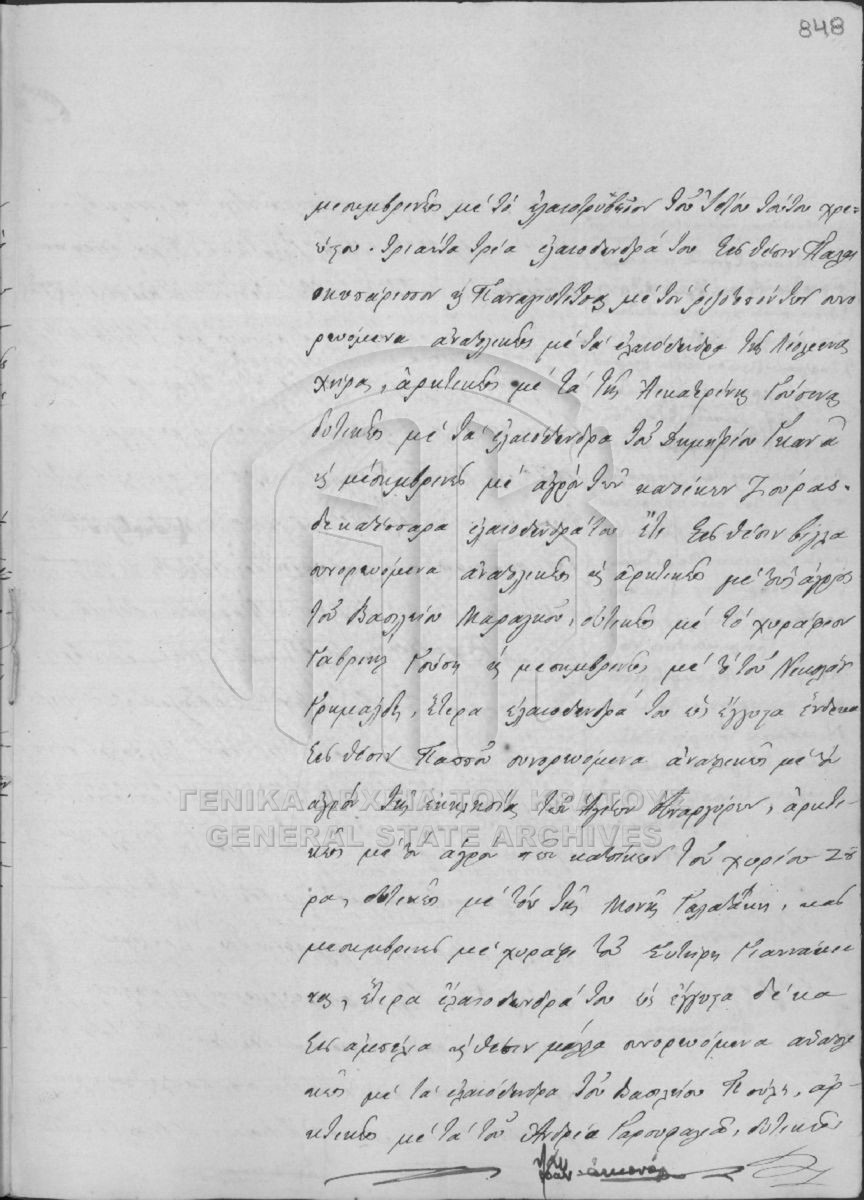 848
μεσημβρινῶς μὲ τὸ ἐλαιοτριβεῖον τοῦ ἰδίου τούτου χρε-
ώστου. τριάντα τρία ἐλαιόδενδρά του εἰς θέσιν Παλαι
οκυπάρισσον ἢ Παναγιωτίτσας μὲ τὸν τόπον των συνο
ρευόμενα ἀνατολικῶς μὲ τὰ ἐλαιόδενδρα τῆς
χήρας, ἀρκτικῶς μὲ τὰ τῆς Αἰκατερίνης Γούσαινας
δυτικῶς μὲ τὰ ἐλαιόδενδρα τοῦ Δημητρίου Γκανᾶ
καὶ μεσημβρινῶς μὲ ἀγρὸν τῶν κατοίκων Ζούρας.
δεκατέσσαρα ἐλαιόδενδρά του ἔτι εἰς θέσιν βίλλα
συνορευόμενα ἀνατολικῶς καὶ ἀρκτικῶς μὲ τοὺς ἀγροὺς
τοῦ Βασιλείου Μαραγκοῦ, δυτικῶς μὲ τὸ χωράφιον
Γαβριὴλ Γούση καὶ μεσημβρινῶς μὲ τὸ τοῦ Νικολάου
Γριμάλδη, ἕτερα ἐλαιόδενδρά του ὡς ἔγγυστα ἕνδεκα
εἰς θέσιν Παπποῦ συνορευόμενα ἀνατολικῶς μὲ τὸν
ἀγρὸν τῆς ἐκκλησίας τῶν Ἁγίων Ἀναργύρων, ἀρκτι-
κῶς μὲ τὸν ἀγρὸν τῶν κατοίκων τοῦ χωρίου Ζού
ρας, δυτικῶς μὲ τὸν τῆς Μονῆς Γαλατάκη, καὶ
μεσημβρινῶς μὲ χωράφι τοῦ Σωτήρη Γιαννάκι
τας, ἕτερα ἐλαιόδενδρά του ὡς ἔγγυστα δέκα
εἰς ἀμπέλια καὶ θέσιν συνορευόμενα ἀνατολι
κῶς μὲ τὰ ἐλαιόδενδρα τοῦ Βασιλείου Πούλη, ἀρ-
κτικῶς μὲ τὰ τοῦ Ἀνδρέα Γαρουφαλιᾶ, δυτικῶς
ΓΕΝΙΚΑ ΑΡΧΕΙΑ ΤΟΥ ΚΡΑΤΟΥΣ
GENERAL STATE ARCHIVES